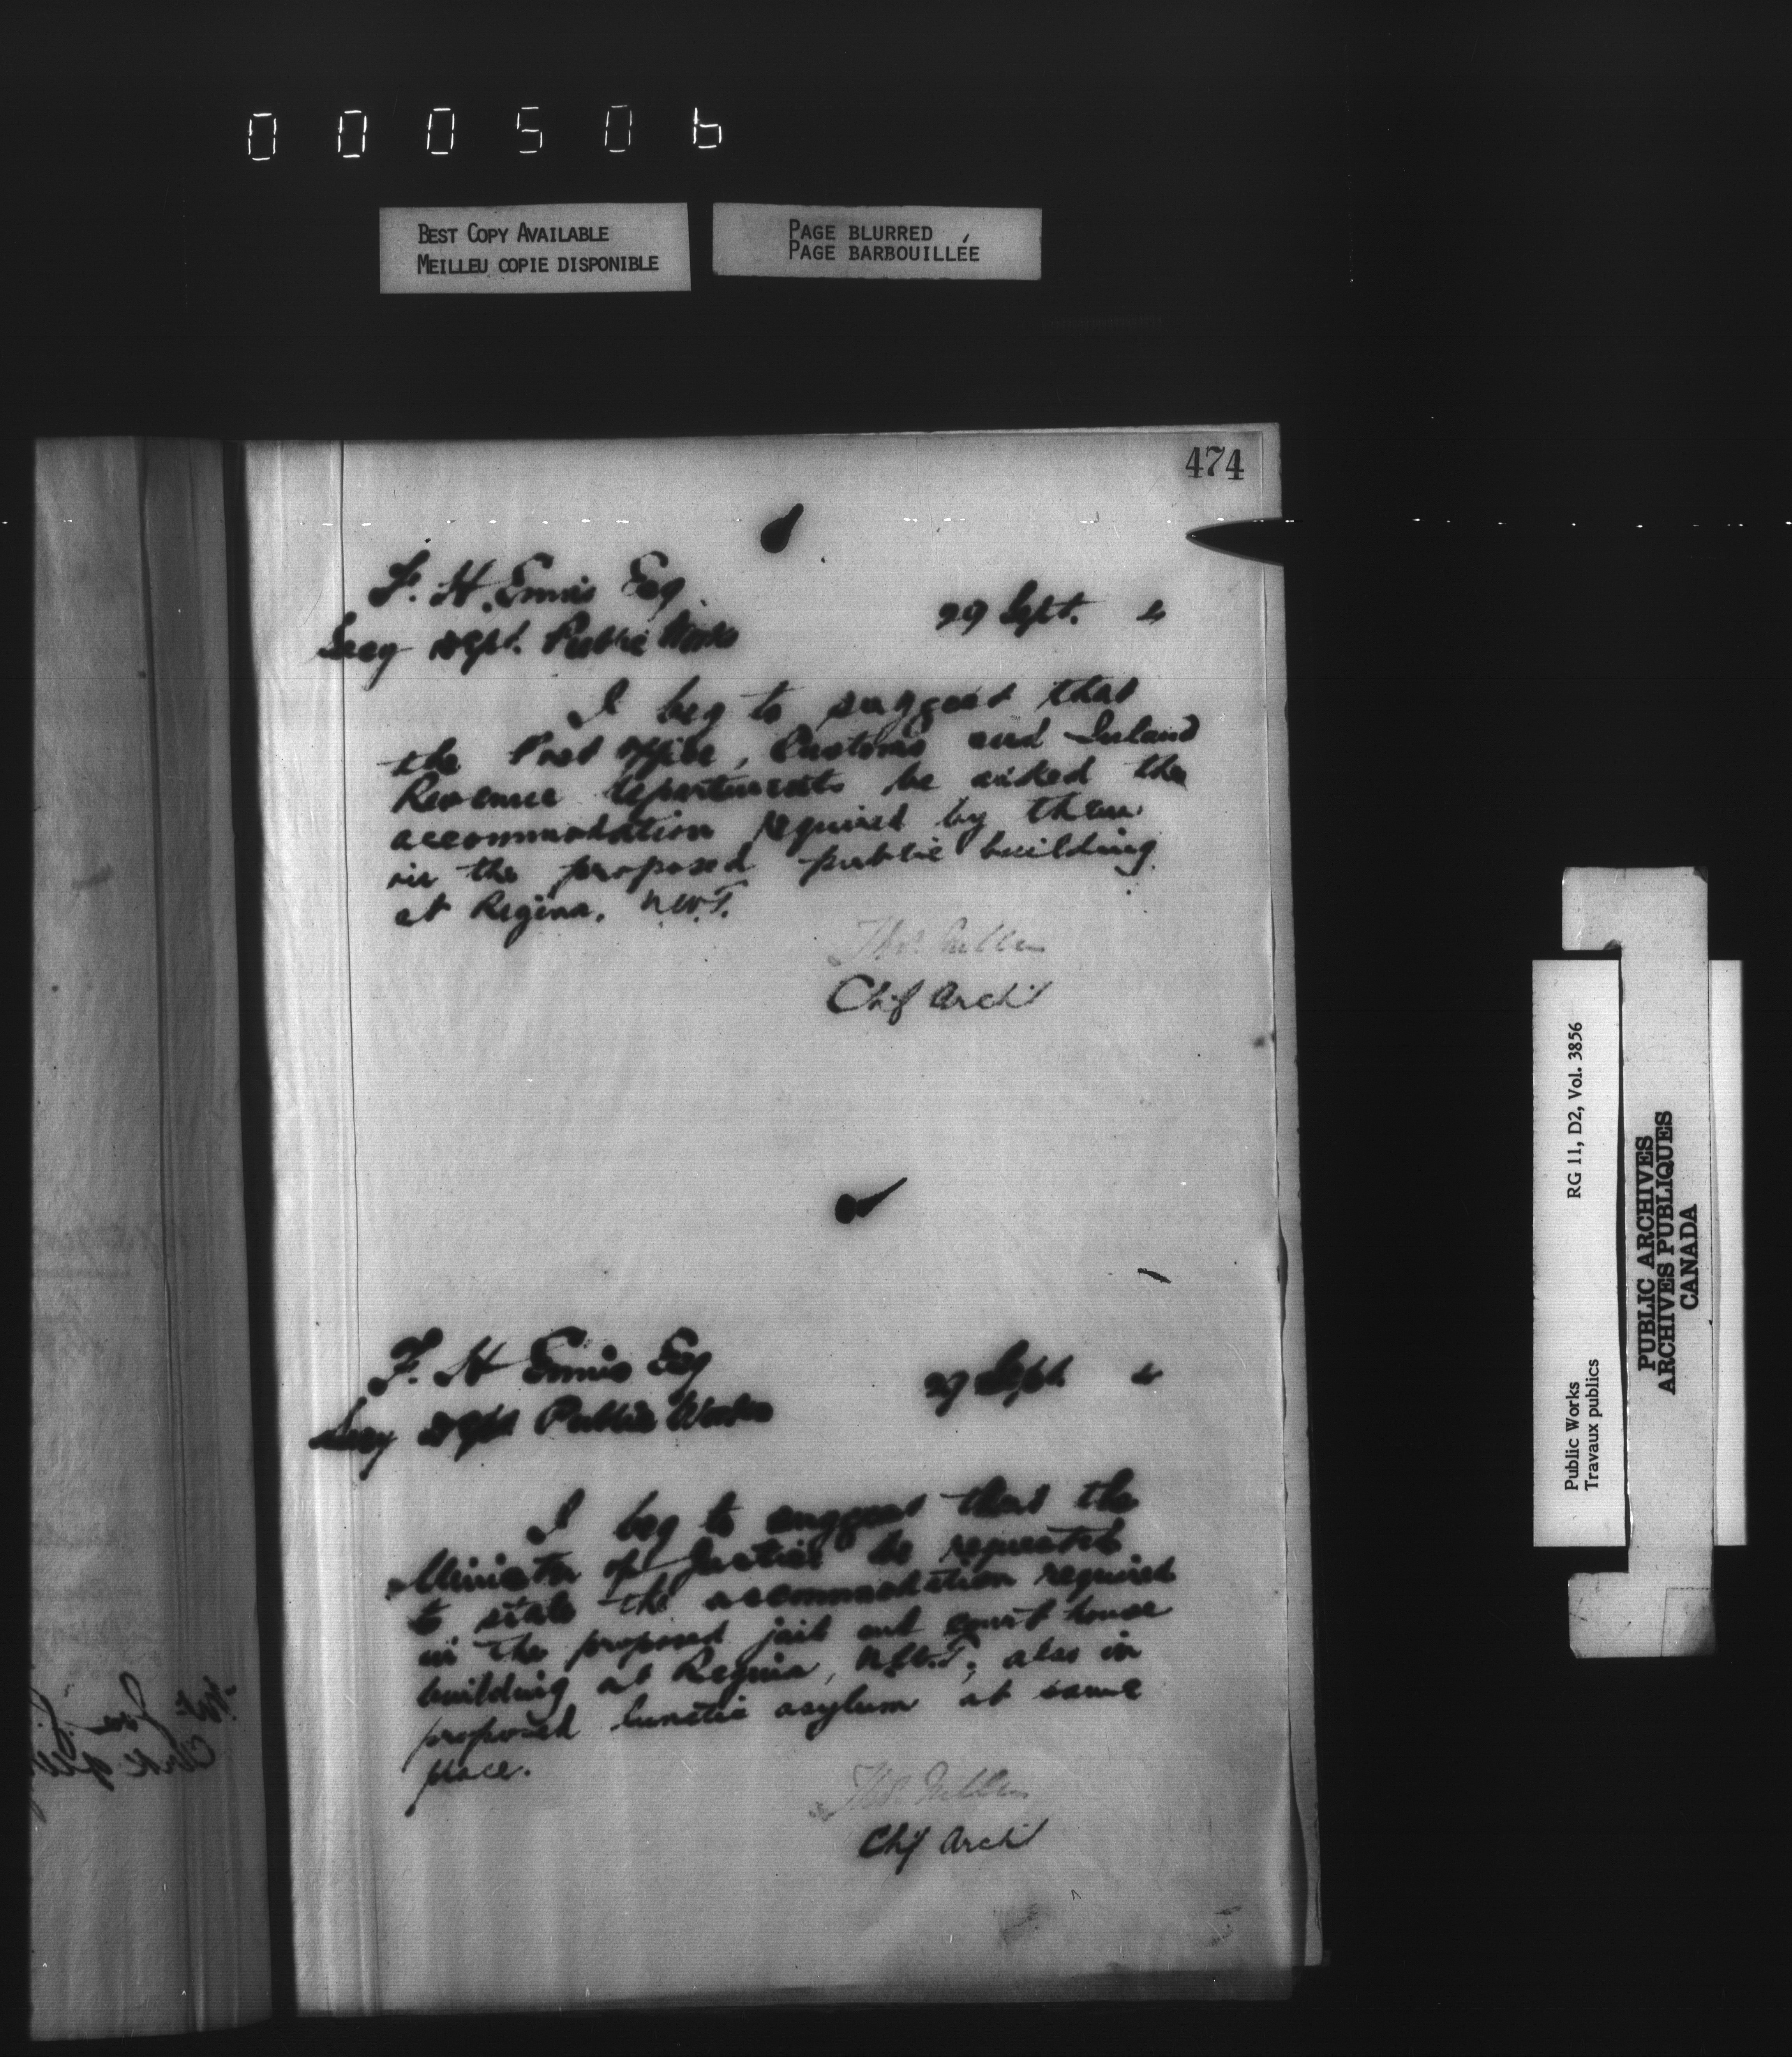 000506
BEST COPY AVAILABLE
MEILLEU COPIE DISPONIBLE
PAGE BLURRED
PAGE BARBOUILLÉE
474
F. H. Ennis Esq
Secy Dept. Public Works
29 Sept. "
I beg to suggest that
the Post Office, Customs and Inland
Revenue departments be asked the
accommodation required by them
in the proposed public building
at Regina, N.W.T.
Thos Fuller
Chif Archt
F. H Ennis Esq
Secy Dept Public Works
29 Sept. "
I beg to suggest that the
Minister of Justice be requested
to state the accommodation required
in the proposed jail and court house
building at Regina, N.W.T., also in
proposed lunatic asylum at same
place.
Thos Fuller
Chif Archt
Public Works
Travaux publics
RG 11, D2, Vol. 3856
PUBLIC ARCHIVES
ARCHIVES PUBLIQUES
CANADA